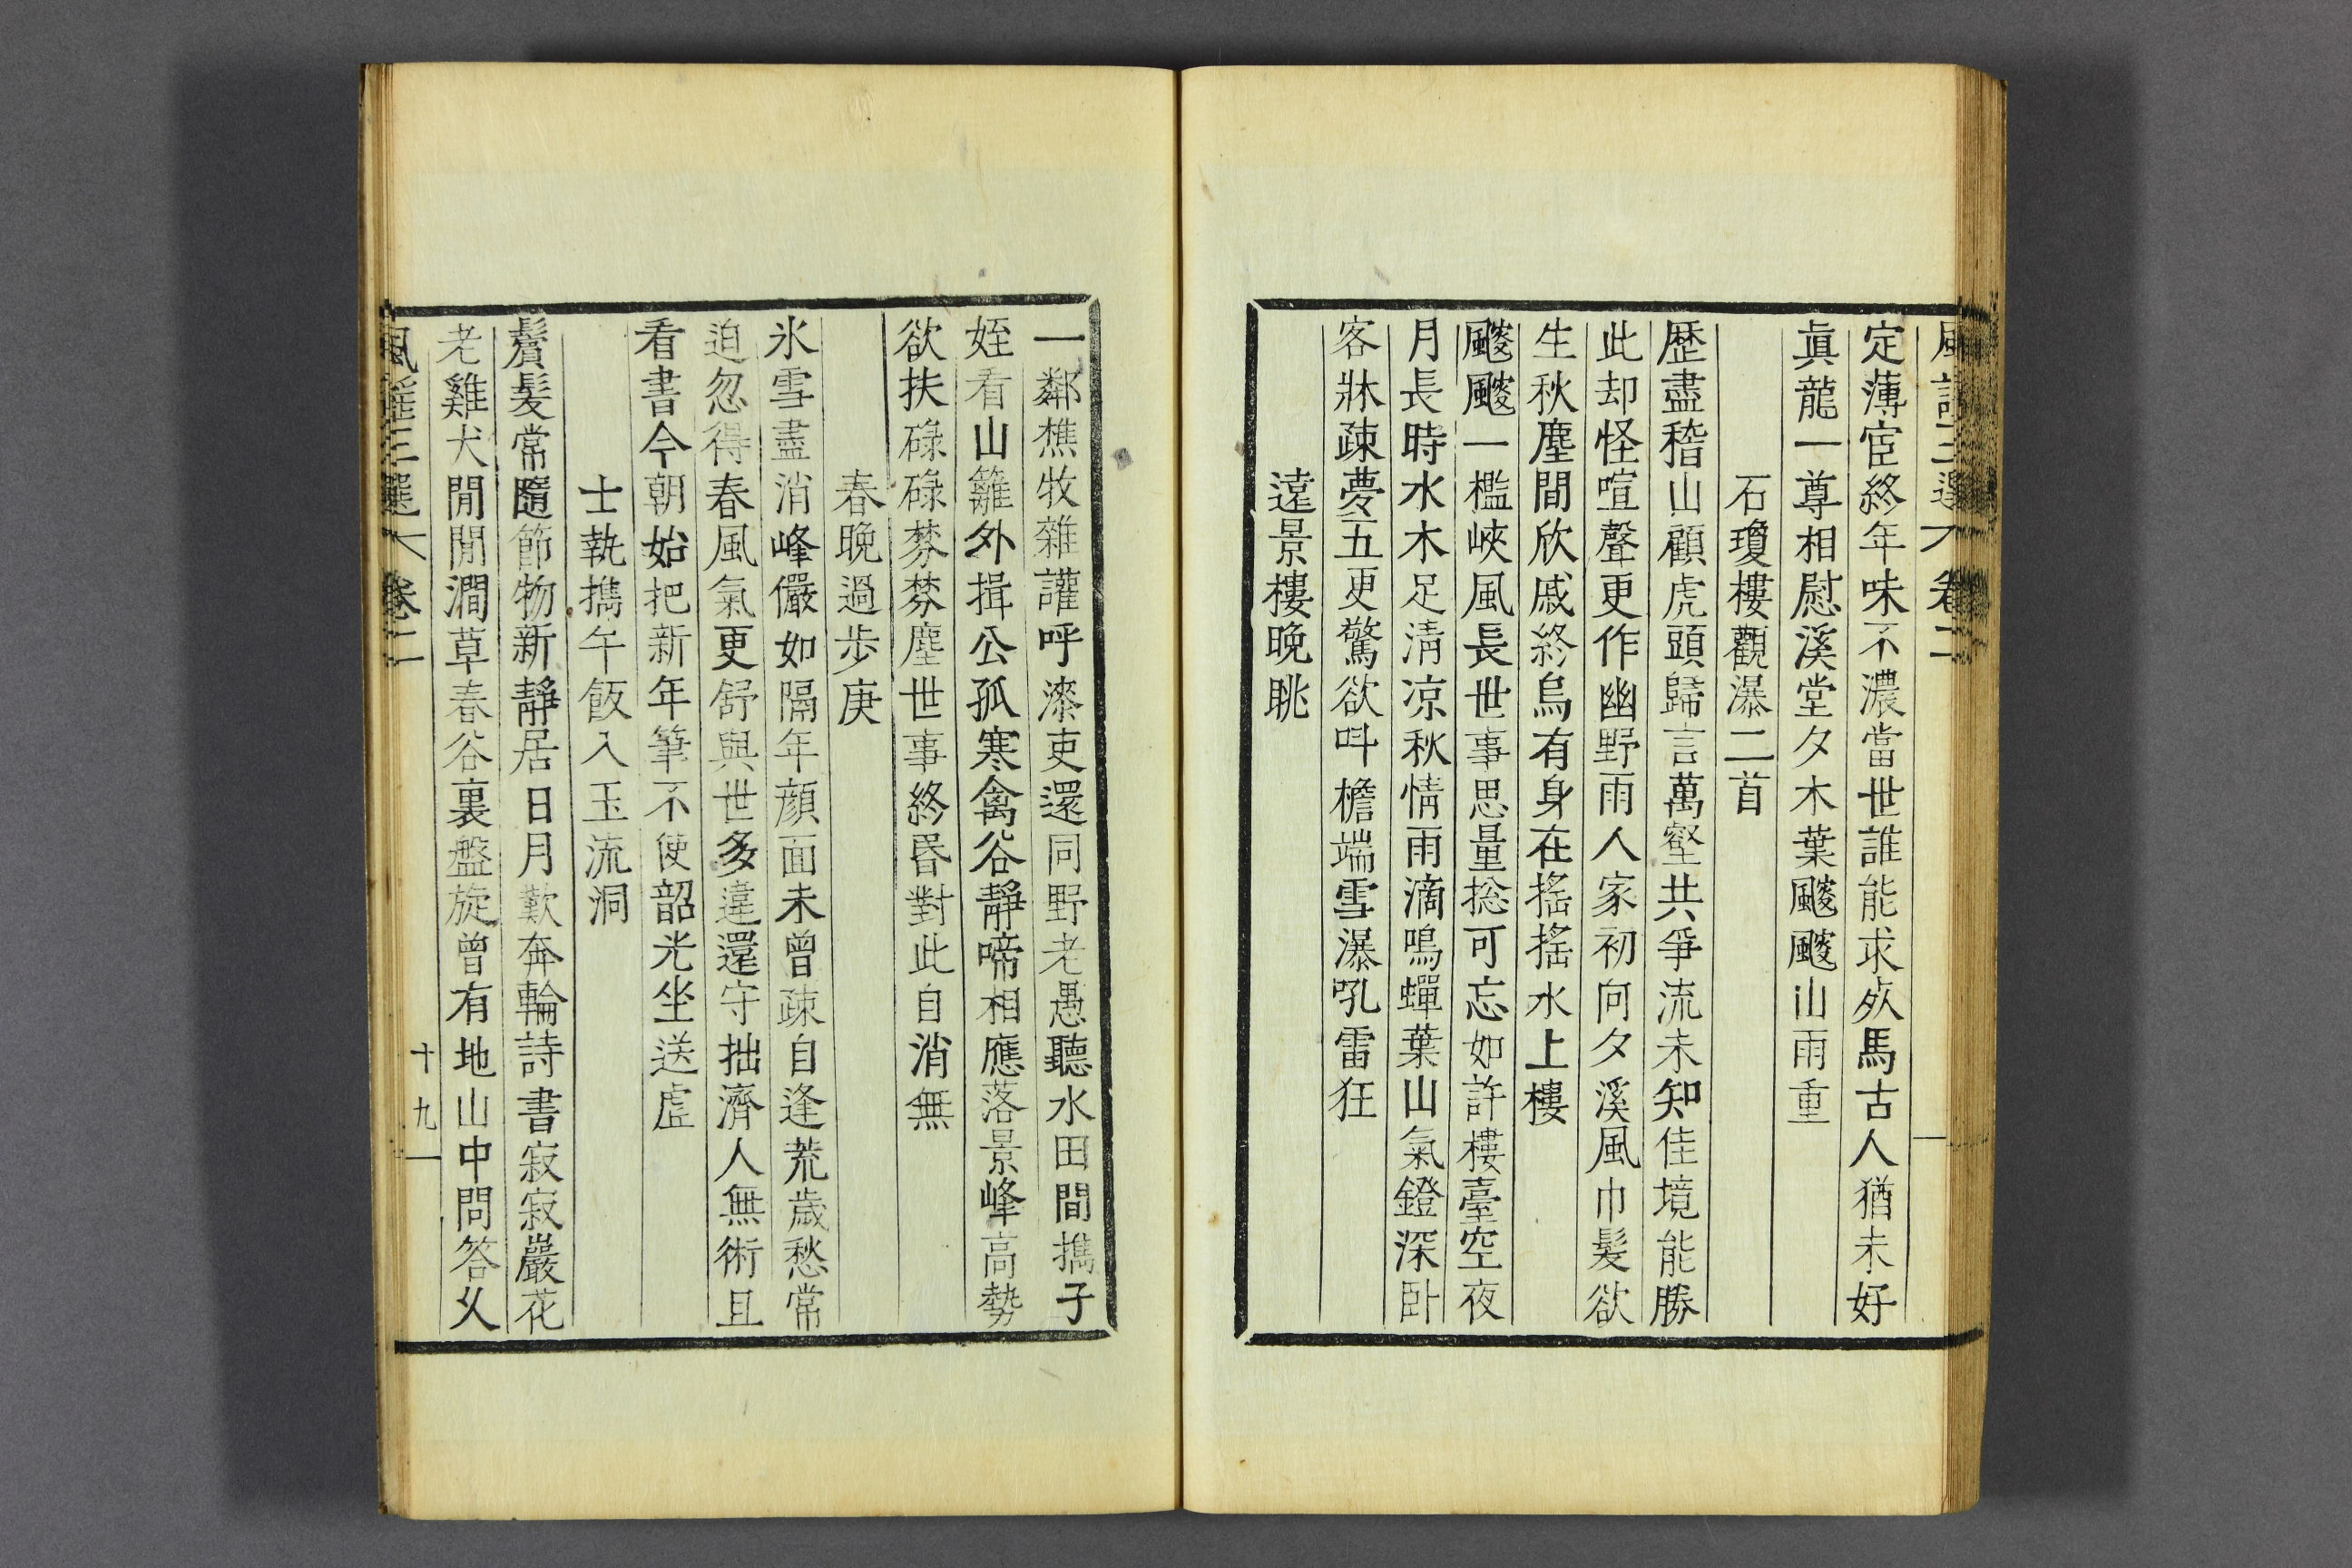 定薄宦終年味不濃當世誰能求㱕馬古人猶未好
眞龍一尊相慰溪堂夕木葉颼颼山雨重
石瓊樓觀瀑二首
歷盡稽山顧虎頭歸言萬壑共爭流未知佳境能勝
此却怪喧聲更作幽野雨人家初向夕溪風巾髮欲
生秋塵間欣戚終烏有身在搖搖水上樓
颼颼一檻峽風長世事思量捴可忘如許樓臺空夜
月長時水木足清凉秋情雨滴鳴蟬葉山氣鐙深卧
客牀疎夢五更驚欲呌檐端雪瀑吼雷狂
遠景樓晚眺
一鄰樵牧雜讙呼漆吏還同野老愚聽水田間擕子
姪看山籬外揖公孤寒禽谷靜啼相應落景峰高勢
欲扶碌碌棼棼塵世事終昏對此自消無
春晚過步庚
氷雪盡消峰儼如隔年顔面未曾疎自逢荒歲愁常
迫忽得春風氣更舒與世多違還守拙濟人無術且
看書今朝始把新年筆不使韶光坐送虛
士執擕午飯入玉流洞
鬢髮常隨節物新靜居日月歎奔輪詩書寂寂巖花
老雞犬閒閒澗草春谷裏盤旋曾有地山中問答乆
風謠三選 卷二
十九